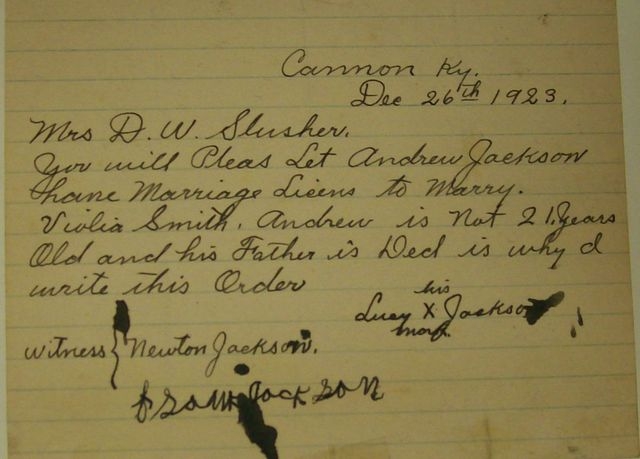 Cannon Ky.
Dec 26th 1923.
Mrs D. W. Slusher.
You will Pleas Let Andrew Jackson
hane Marriage Licens to Marry.
Violia Smith. Andrew is Not 21. Years
Old and his Father is Ded is why I
write this Order
his
Lucy X Jackson
mark.
witness { Newton Jackson.
Jackson